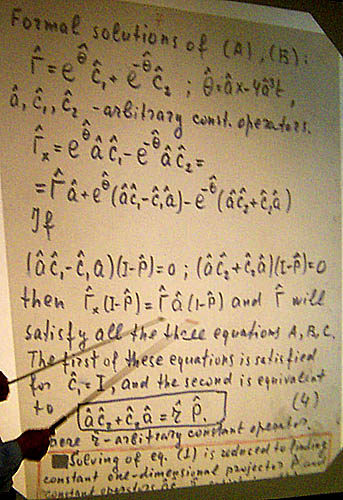 Formal solutions of (A), (B):
Γ̂ = e^θ̂ ĉ₁ + e^-θ̂ ĉ₂ ; θ̂ = âx - 4â³t,
â, ĉ₁, ĉ₂ - arbitrary const. operators.
Γ̂ₓ = e^θ̂ â ĉ₁ - e^-θ̂ â ĉ₂ =
= Γ̂ â + e^θ̂ (âĉ₁ - ĉ₁â) - e^-θ̂ (âĉ₂ + ĉ₂â)
If
(âĉ₁ - ĉ₁â)(I-P̂) = 0 ; (âĉ₂ + ĉ₂â)(I-P̂) = 0
then Γ̂ₓ(I-P̂) = Γ̂ â (I-P̂) and Γ̂ will
satisfy all the three equations A, B, C.
The first of these equations is satisfied
for ĉ₁ = I, and the second is equivalent
to âĉ₂ + ĉ₂â = r̂ P̂. (4)
here r̂ - arbitrary constant operator.
Solving of eq. (1) is reduced to finding
constant one-dimensional projector P̂ and
constant operators